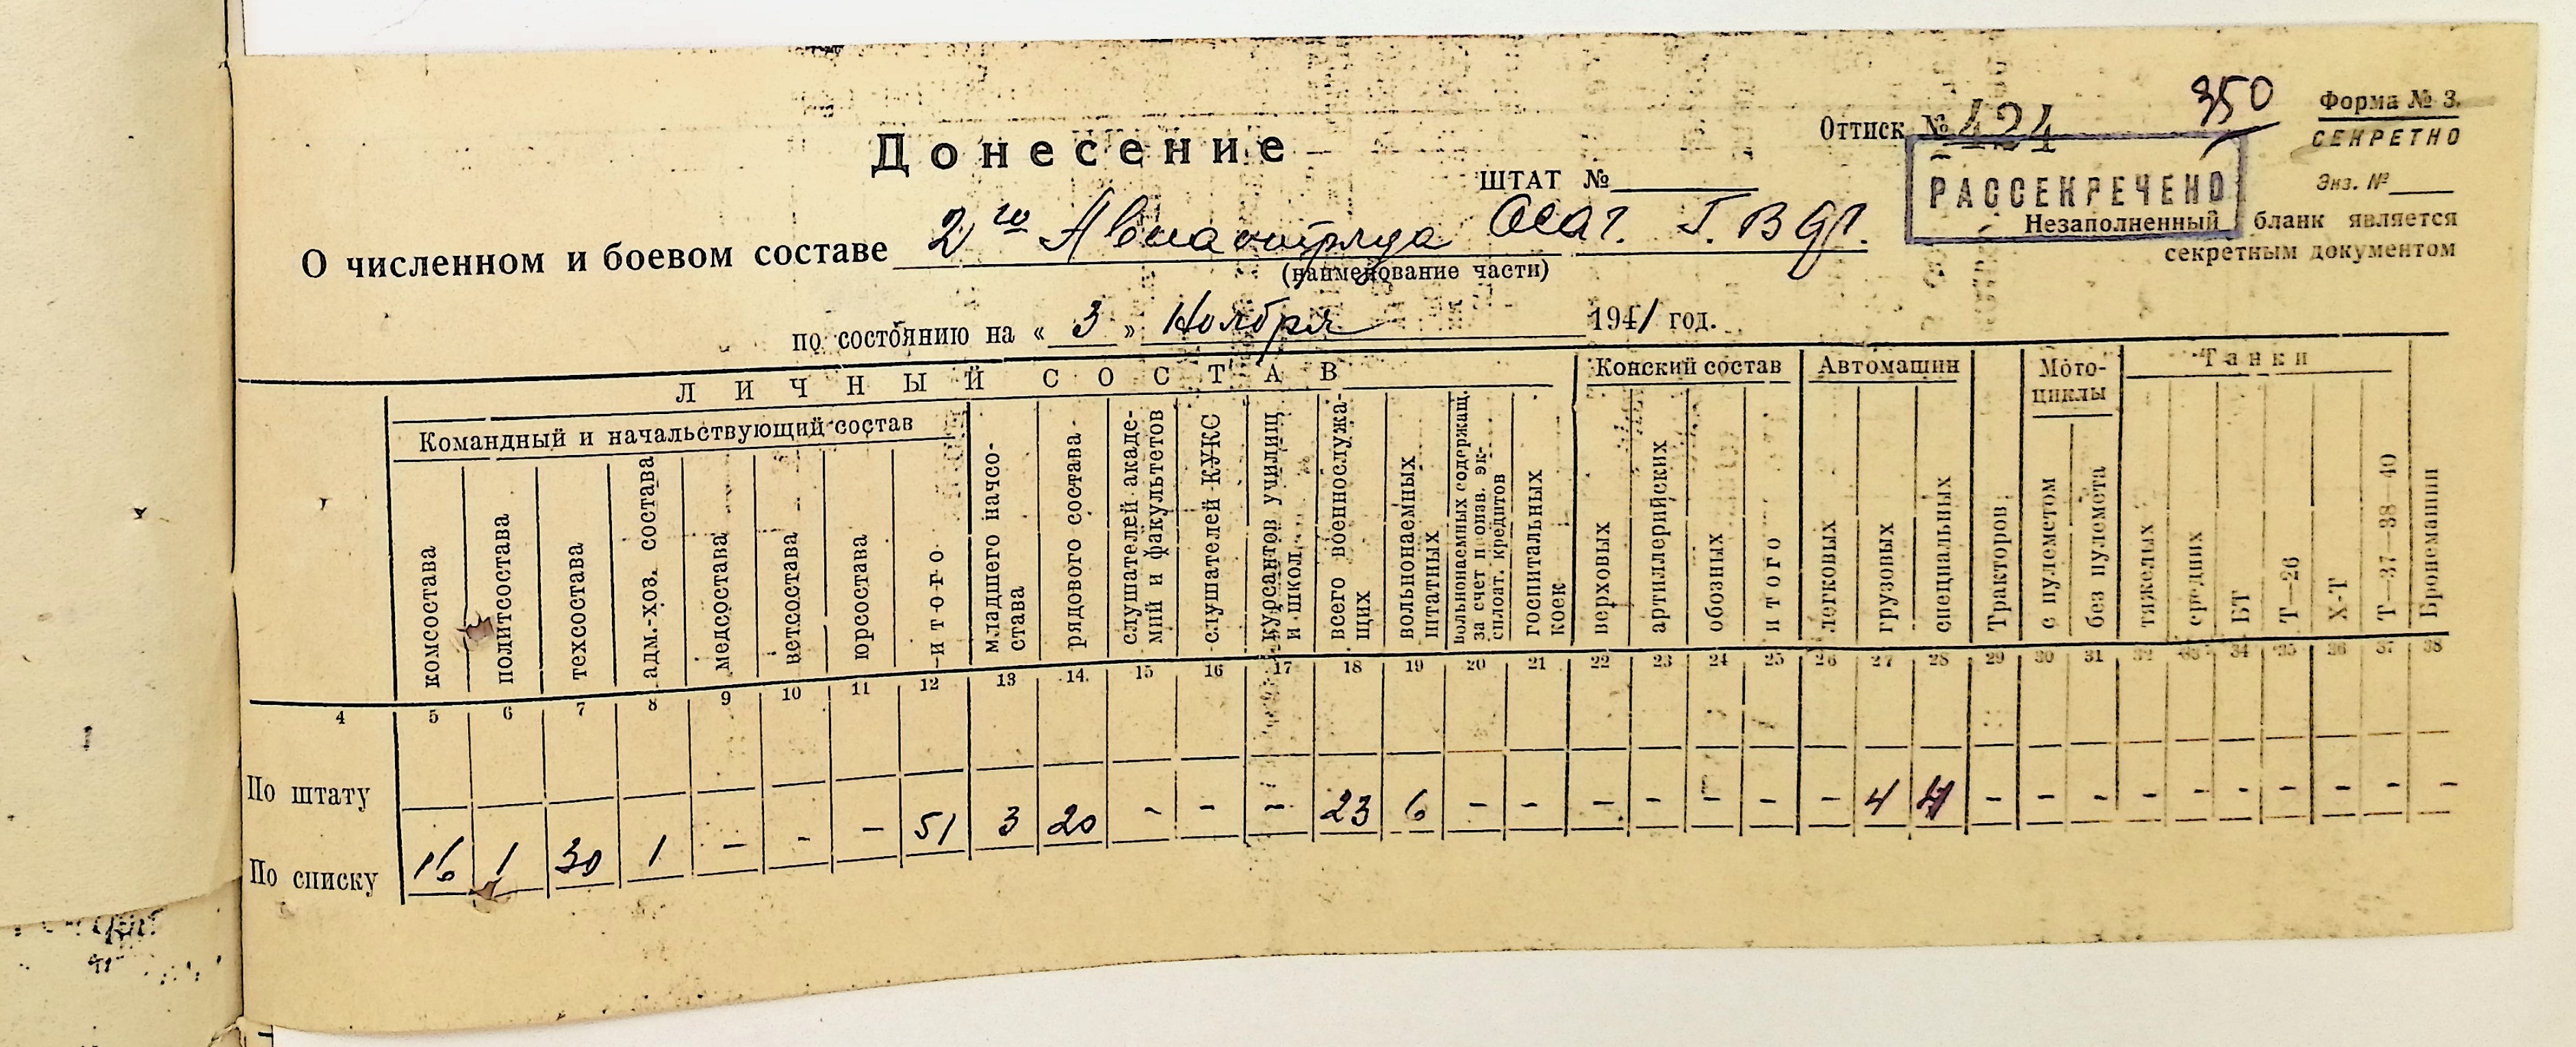 350
Форма № 3.
Оттиск № 424
СЕКРЕТНО
Донесение
ШТАТ №
РАССЕКРЕЧЕНО
Экз. №
Незаполненный бланк является
секретным документом
О численном и боевом составе 2го Авиаотряда
(наименование части)
по состоянию на « 3 » Ноября 1941 год.
ЛИЧНЫЙ СОСТАВ
Конский состав
Автомашин
Мото-
циклы
Танки
Командный и начальствующий состав
комсостава
политсостава
техсостава
адм.-хоз. состава
медсостава
ветсостава
юрсостава
итого
младшего начсо-
става
рядового состава
слушателей акаде-
мий и факультетов
слушателей КУКС
курсантов училищ
и школ
всего военнослужа-
щих
вольнонаемных
штатных
вольнонаемных содержащ.
за счет п онав. эк-
сплоат. кредитов
госпитальных
коек
верховых
артиллерийских
обозных
итого
легковых
грузовых
специальных
Тракторов
с пулеметом
без пулемета
тяжелых
средних
БТ
Т—26
Х-Т
Т—37—38—40
Бронемашин
4 5 6 7 8 9 10 11 12 13 14 15 16 17 18 19 20 21 22 23 24 25 26 27 28 29 30 31 32 33 34 35 36 37 38
По штату
По списку 16 1 30 1 - - - 51 3 20 - - - 23 6 - - - - - - - 4 4 - - - - - - - - - -